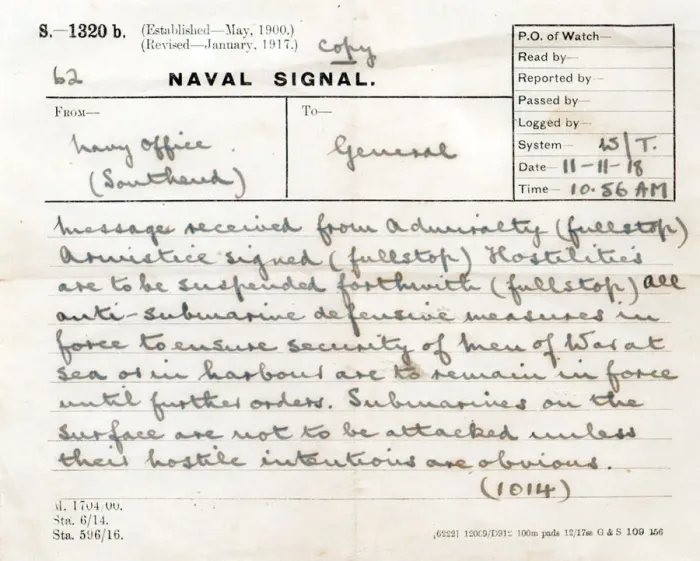 S.—1320 b. (Established—May, 1900.)
(Revised—January, 1917.)
Copy
62
NAVAL SIGNAL.
P.O. of Watch—
Read by—
Reported by—
Passed by—
Logged by—
System— W/T.
Date— 11-11-18
Time— 10.56 AM
FROM—
Navy Office.
(Southend)
To—
General
Message received from Admiralty (fullstop)
Armistice signed (fullstop) Hostilities
are to be suspended forthwith (fullstop) All
anti-submarine defensive measures in
force to ensure security of Men of War at
sea or in harbour are to remain in force
until further orders. Submarines on the
surface are not to be attacked unless
their hostile intentions are obvious.
(1014)
M. 1704/00.
Sta. 6/14.
Sta. 596/16.
100m pads 12/17 G & S 109 156